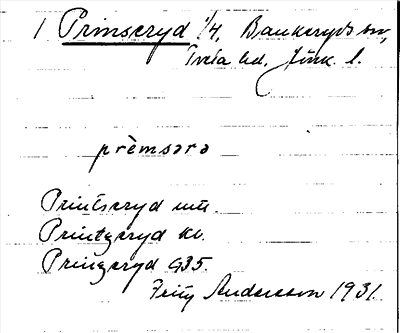 1 Prinseryd 1/4, Bankeryds sn,
Tveta hd. Jönk. l.
prèmsərə
Printseryd
Printzeryd
Prinzeryd G35.
Fritz Andersson 1931.